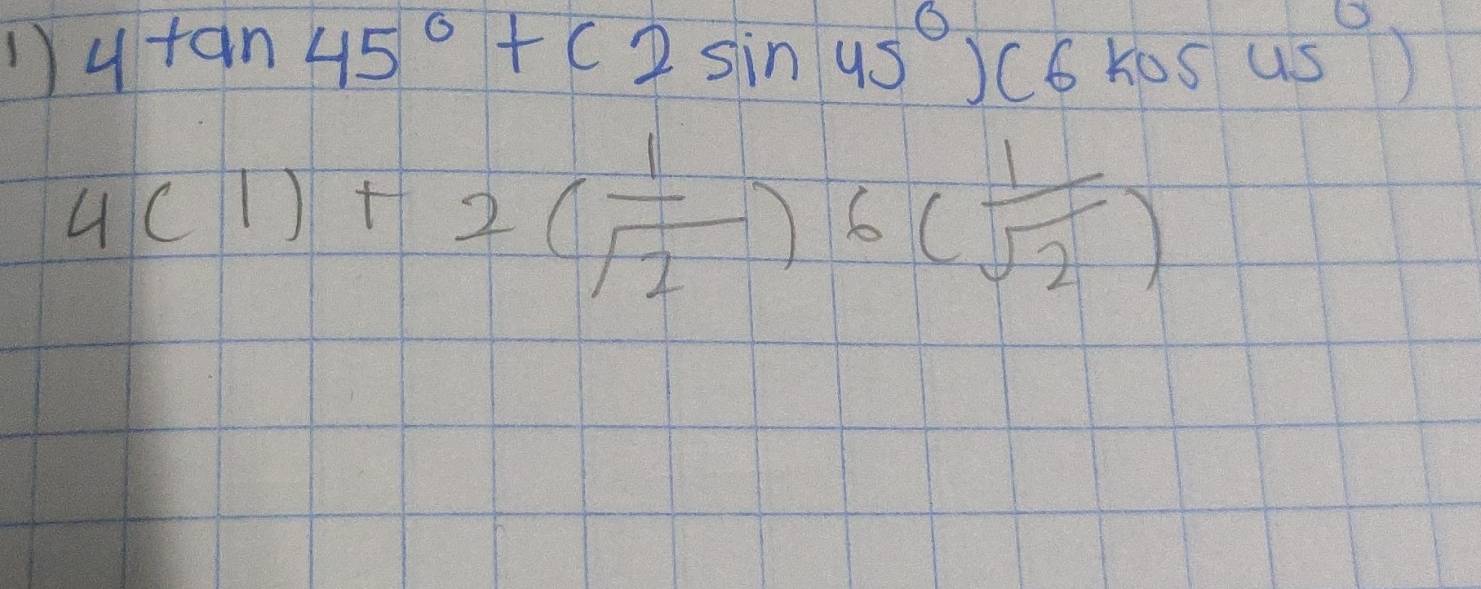 1) 4 tan 45° + (2 sin 45°)(6 kos 45°)
4(1) + 2(1/√2) 6(1/√2)